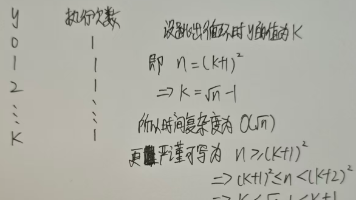 y 执行次数
0 1
1 1
2 1
⋮ ⋮
K 1
设跳出循环时y的值为K
即 n=(k+1)²
⇒ k=√n-1
所以时间复杂度为 O(√n)
更严谨可写为 n≥(k+1)²
⇒ (k+1)²≤n<(k+2)²